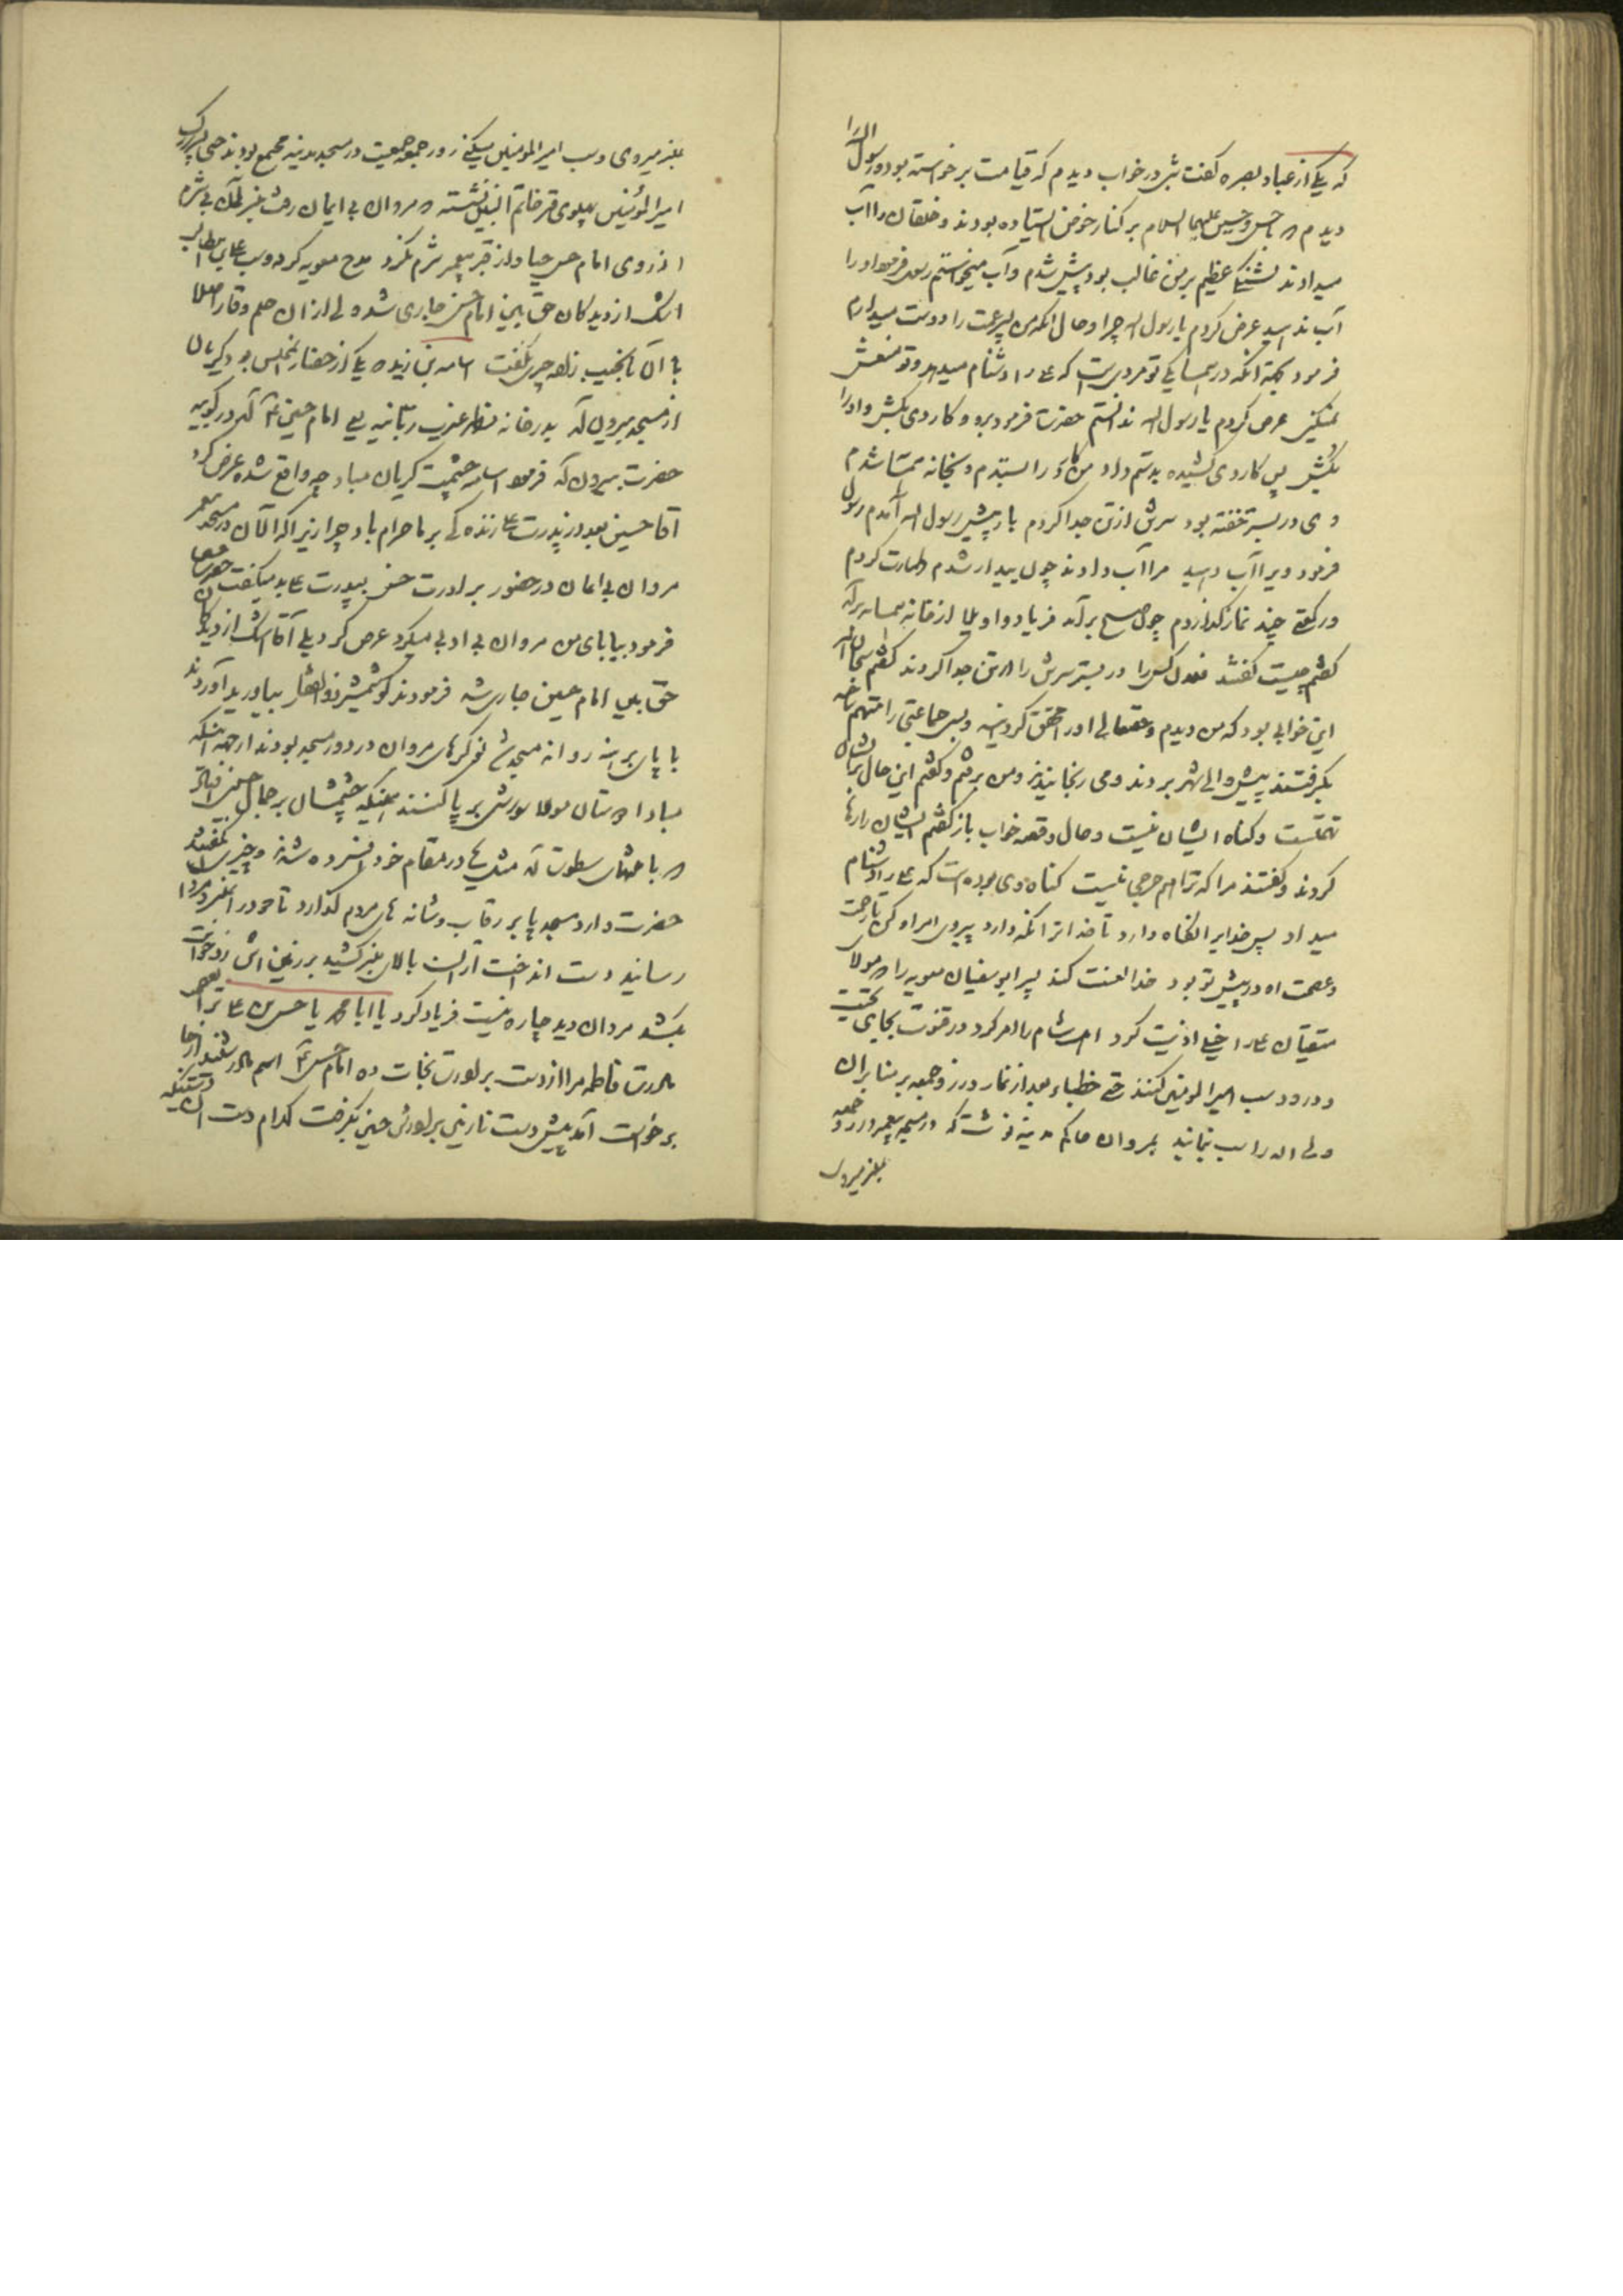 که یکی از عباد بصره گفت شبی در خواب دیدم که قیامت برخواسته بود و رسول الله را
دیدم با حسن و حسین علیهما السلام بر کنار حوض ایستاده بودند و خلقان را آب
میدادند تشنگی عظیم بر من غالب بود پیش شدم و آب میخواستم رسول فرمود او را
آب ندهید عرض کردم یا رسول الله چرا و حال آنکه من پسر عمت را دوست میدارم
فرمود بجهة آنکه در همسایگی تو مردی است که علی را دشنام میدهد و تو منعش
نمیکنی عرض کردم یا رسول الله ندانستم حضرت فرمود برو و کاردی بکش و او را
بکش پس کاردی کشیده بدستم داد من کارد را بستدم و بخانه همسایه شدم
وی در بستر خفته بود سرش از تن جدا کردم باز پیش رسول الله آمدم رسول
فرمود ویرا آب دهید مرا آب دادند چون بیدار شدم طهارت کردم
و رکعتی چند نماز گذاردم چون صبح برآمد فریاد و اویلا از خانه همسایه برآمد
گفتم چیست گفتند فلان کس را در بستر سرش را از تن جدا کردند گفتم سبحان الله
این خوابی بود که من دیدم و حقتعالی او را محقق گردانید و پس جماعتی را متهم ساخته
بگرفتند پیش والی شهر بردند و می رنجانیدند و من برفتم و گفتم این حال بر ایشان
تهمتست و گناه ایشان نیست و حال وقعه خواب باز گفتم ایشان را رها
کردند و گفتند مرا که ترا هم حرجی نیست گناه وی بوده است که علی را دشنام
میداد پس خدایرا نگاه دارد تا خدا ترا نگه دارد پیروی امر او کن تا رحمت
و عصمت او در پیش تو بود خدا لعنت کند پسر ابوسفیان معویه را مولای
متقیان علی را خیلی اذیت کرد اهل شام را امر کرد در قنوت بجای تحیت
و درود سب امیر المومنین کنند حتی خطباء بعد از نماز در روز جمعه بر منابر آن
ولی الله را سب نمایند بمروان حاکم مدینه نوشت که در مسجد پیغمبر در روز جمعه
بمنبر میروی
بمنبر میروی و سب امیر المومنین میکنی روز جمعه جمعیت در مسجد مدینه مجتمع بودند حتی پسر بزرگ
امیر المؤمنین پهلوی قبر خاتم النبیین نشسته مروان بی ایمان رفت بمنبر آن بی شرم
از روی امام حسن حیا و از قبر پیغمبر شرم نکرد مدح معویه کرد و سب علی بن ابی طالب
اشک از دیدگان حق بین امام حسن جاری شد ولی از آن حلم و وقار اصلا
با آن نانجیب زنازاده چیزی نگفت اسامه بن زید یکی از حضار مجلس بود گریان
از مسجد بیرون آمد بدر خانه مظهر غضب ربانیه یعنی امام حسین ع آمد در کوبید
حضرت بیرون آمد فرمود اسامه چشمت گریان مباد چه واقع شده عرض کرد
آقا حسین بعد از پدرت علی زنده گی بر ما حرام باد چرا زیرا که الآن در مسجد پیغمبر
مروان بی ایمان در حضور برادرت حسن بپدرت علی بد میگفت حضرت
فرمود بیا بابای من مروان بی ادبی میکرد عرض کرد بلی آقا اشک از دیدگان
حق بین امام حسین جاری شد فرمودند شمشیر ذوالفقار بیاورید آوردند
با پای برهنه روانه مسجد شد نوکرهای مروان در دور مسجد بودند از جهة اینکه
مبادا دوستان مولا شورشی برپا کنند همینکه چشمشان بر جمال حسین افتاد
با همان سطوت که مثل علی در مقام خود افسرده شدند و چیزی نگفتند
حضرت وارد مسجد پا بر رقاب و شانه های مردم گذارد تا خود را بمنبر مروان
رسانید دست انداخت از بالای منبر کشید بر زمین زد خواست
بکشد مروان دید چاره نیست فریاد کرد یا ابا محمد یا حسن بن علی ترا بحق
مادرت فاطمه مرا از دست برادرت نجات ده امام حسن ع اسم مادر شنید از جا
برخواست آمد پیش دست نازنین برادرش حسین بگرفت کدام دست آن دستیکه